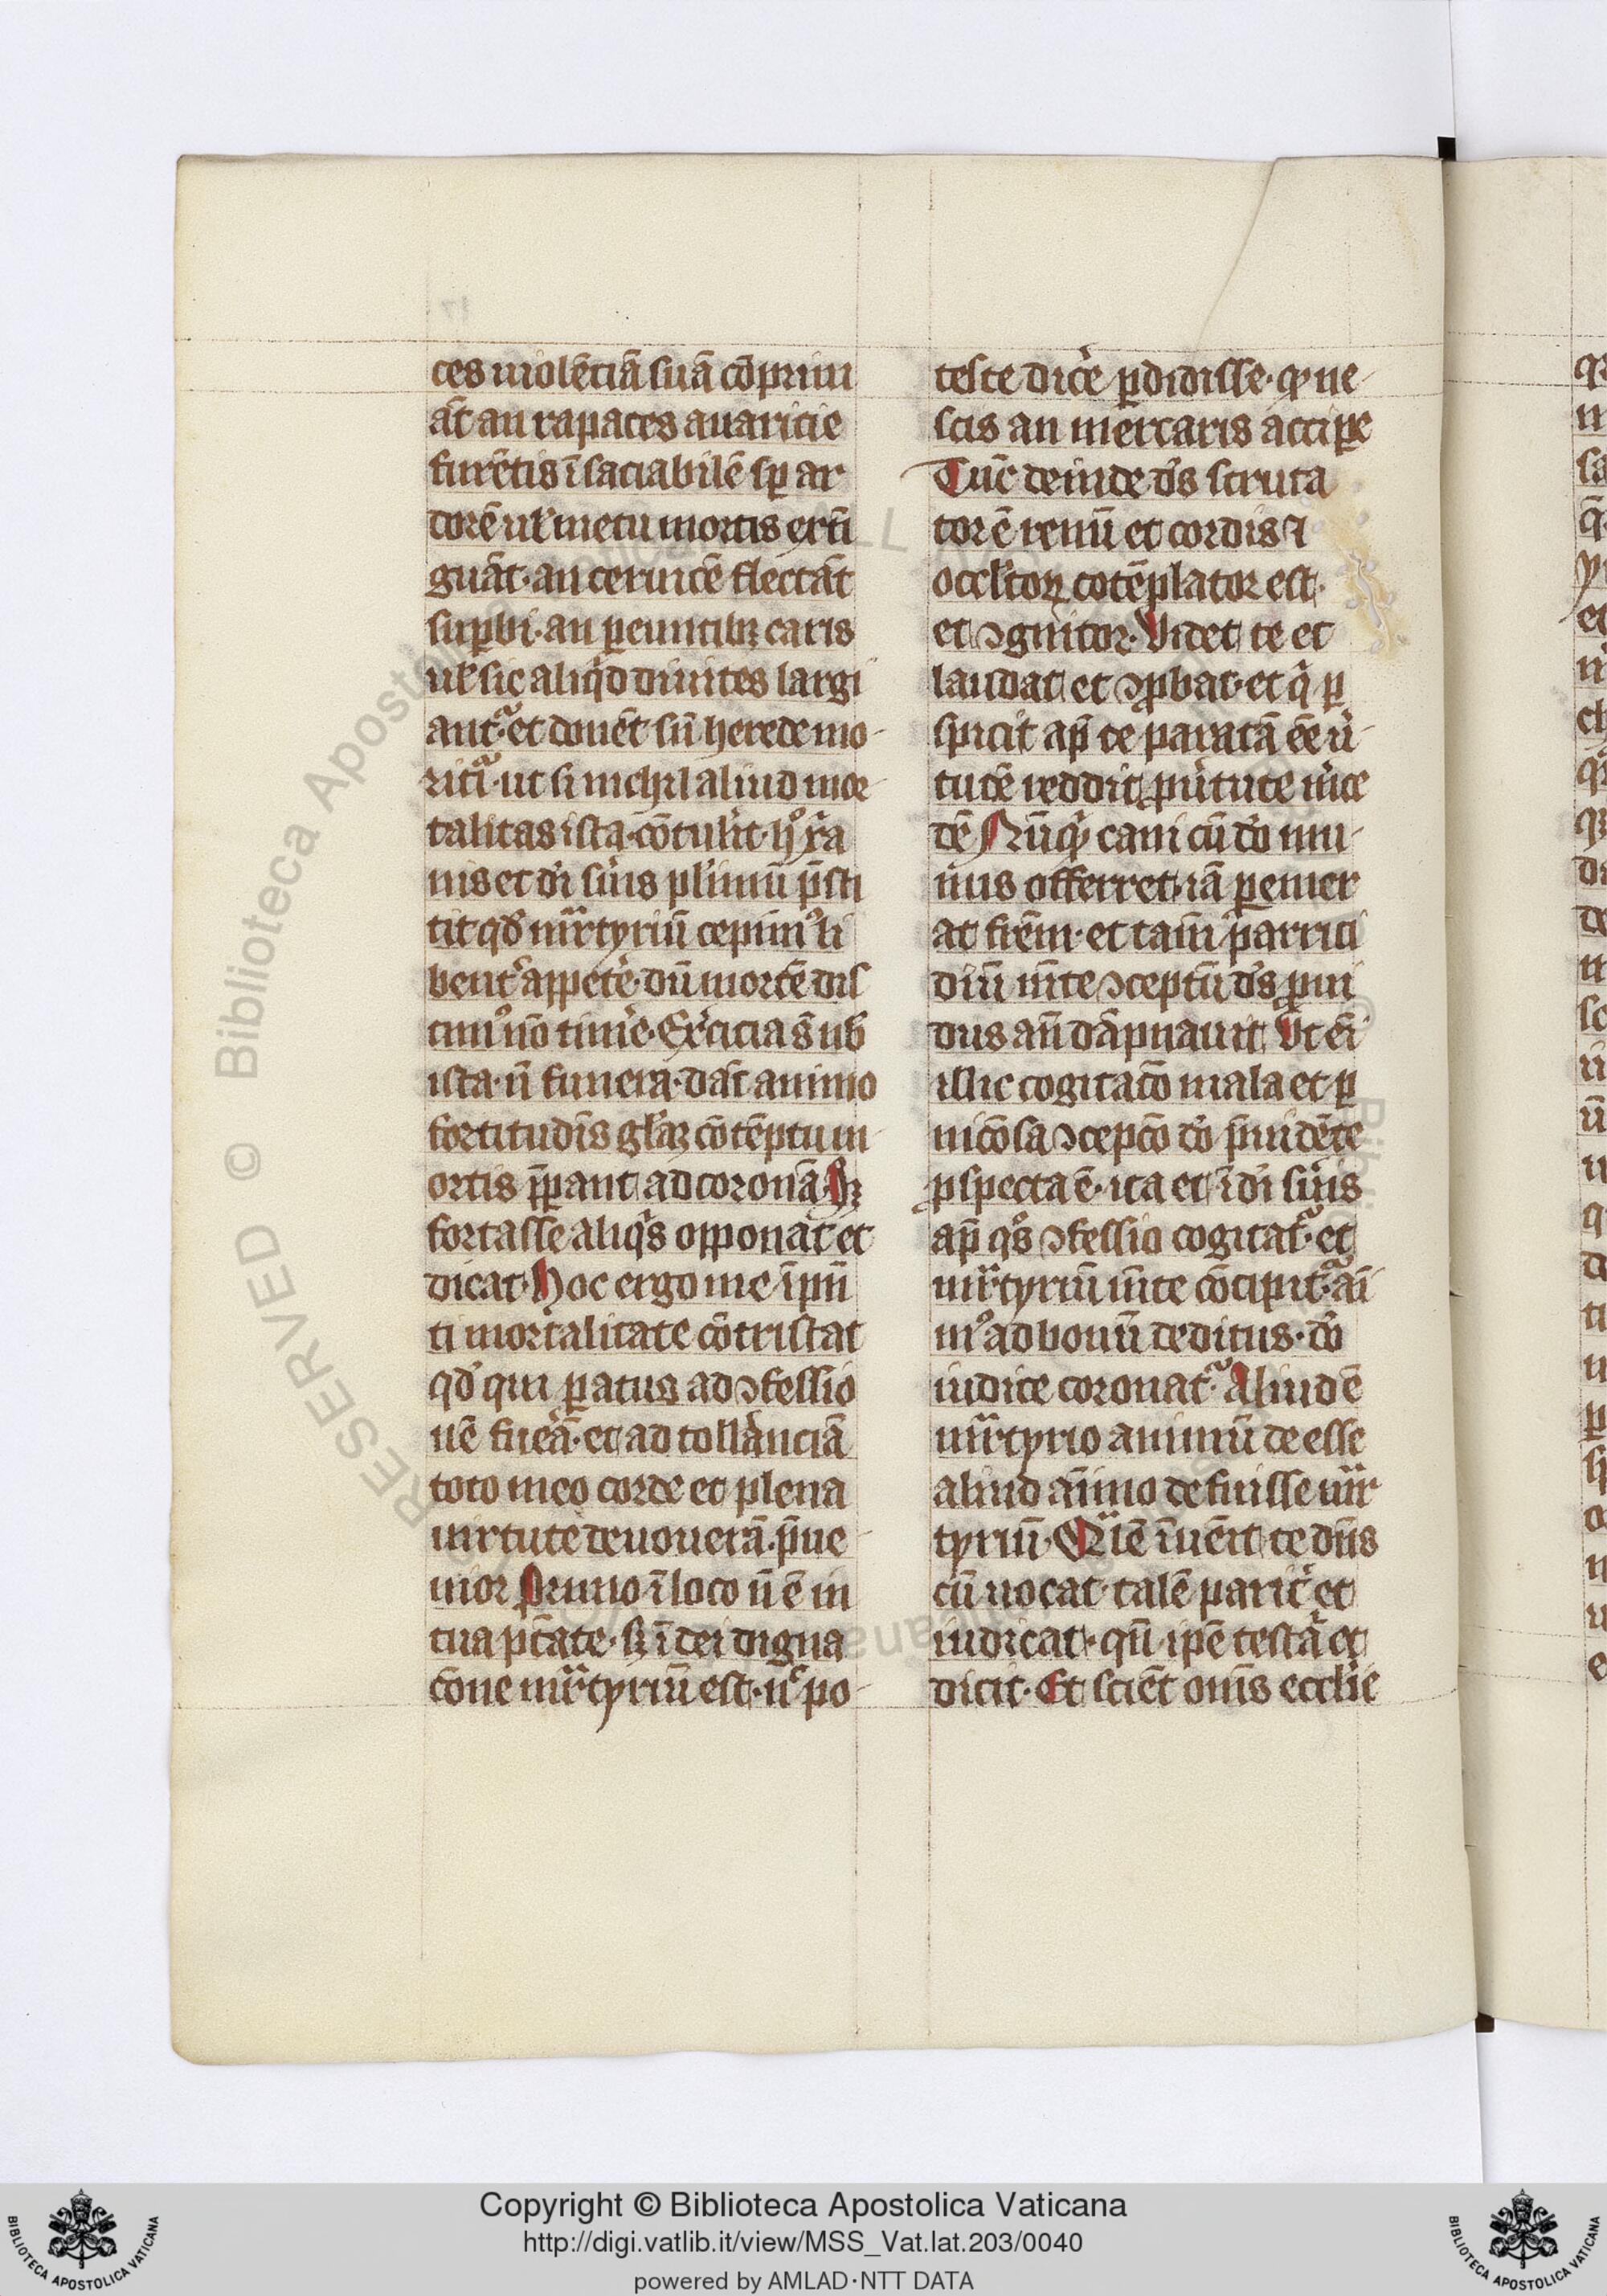 ces uiolētiā suā cōprim
āt an rapaces auaricie
furētis īsaciabilē sp ar
dorē ul̓ metu mortis exti
guāt· an ceruicē flectāt
suꝑbi· an ꝑeuntibꝫ caris
ul̓ sic aliqͥd diuites largi
ant᷑· et donēt sn̄ herede mo-
rit᷑i· ut si nichil aliud mor-
talitas ista· cōtulīt· hͦ xͬa
nis et di̓ suͥis pl̓imū p̄sti
tit qd̓ mr̄tyriū cepimꝰ li
bent᷑ appete᷑· dū mortē dis
cimꝰ nō time᷑· Ex᷑cicia s̄ nb̓
ista· n̄ funera· dāt animo
fortitudīs gl̓aꝫ cōtēptu m-
ortis p̄parant ad coronā Sꝫ
fortasse aliqͥs opponat et
dicat· Hoc ergo me ī pn̄
ti mortalitate cōtristat
qd̓ qui ꝑatus ad ꝯfessio
nē fuerā· et ad toll᷑anciā
toto meo corde et plena
uirtute deuouerā· p̄ue-
nior Primo ī loco n̄ ē in
tua ptāte· sꝫ ī dei digna
tōne mr̄tyriū est· n̄ͨ po-
teste dice᷑ ꝑdidisse· qͦ ne-
scis an mercaris accipe᷑
Tūc deinde ds̄ scruta
torē renū et cordis ⁊
occl̓toꝝ cotēplator est·
et ꝯgnitor· Videt te et
laudat et ꝯprobat· et qͥ ꝑ
spicit ap̄ te paratā ēe uͥ-
tutē reddit, ꝓ uͥtute m᷑ce
dē Nūqͥ cayn cū dō mu-
nus offerret· iā ꝑemer
at frēm· et tam̄ parrici
diū mēte ꝯceptū ds̄ ꝓui
dus an̄ dāpnauit Vt ei̓
illic cogitatō mala et ꝑ
nitiōsa ꝯceptō dō ꝓuidēte
ꝓspecta ē· ita et ī di̓ suͥis
ap̄ qͦs ꝯfessio cogitat᷑· et
mr̄tyriū mēte cōcipit᷑· ai̓
mꝰ ad bonū deditus· dō
iudice coronat᷑· Aliud ē
mr̄tyrio animū deesse
aliud aīmo defuisse mr̄
tyriū· Qͣlē īuēit te dn̄s
cū uocat· talē parit᷑ et
iudicat· qn̄ ipē testat᷑ et
dicit· Et sciēt om̄s eccl̓ie
Copyright © Biblioteca Apostolica Vaticana
http://digi.vatlib.it/view/MSS_Vat.lat.203/0040
powered by AMLAD·NTT DATA
BIBLIOTECA APOSTOLICA VATICANA
BIBLIOTECA APOSTOLICA VATICANA